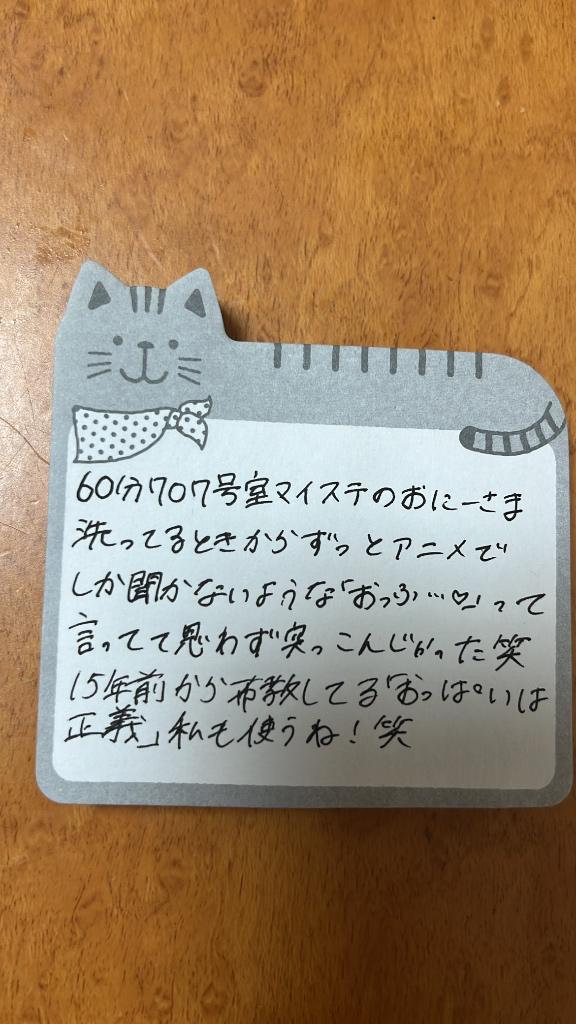 60分707号室マイステのおにーさま
洗ってるときからずっとアニメで
しか聞かないような「おっふ…♡」って
言ってて思わず突っこんじゃった笑
15年前から布教してる「おっぱいは
正義」私も使うね！笑